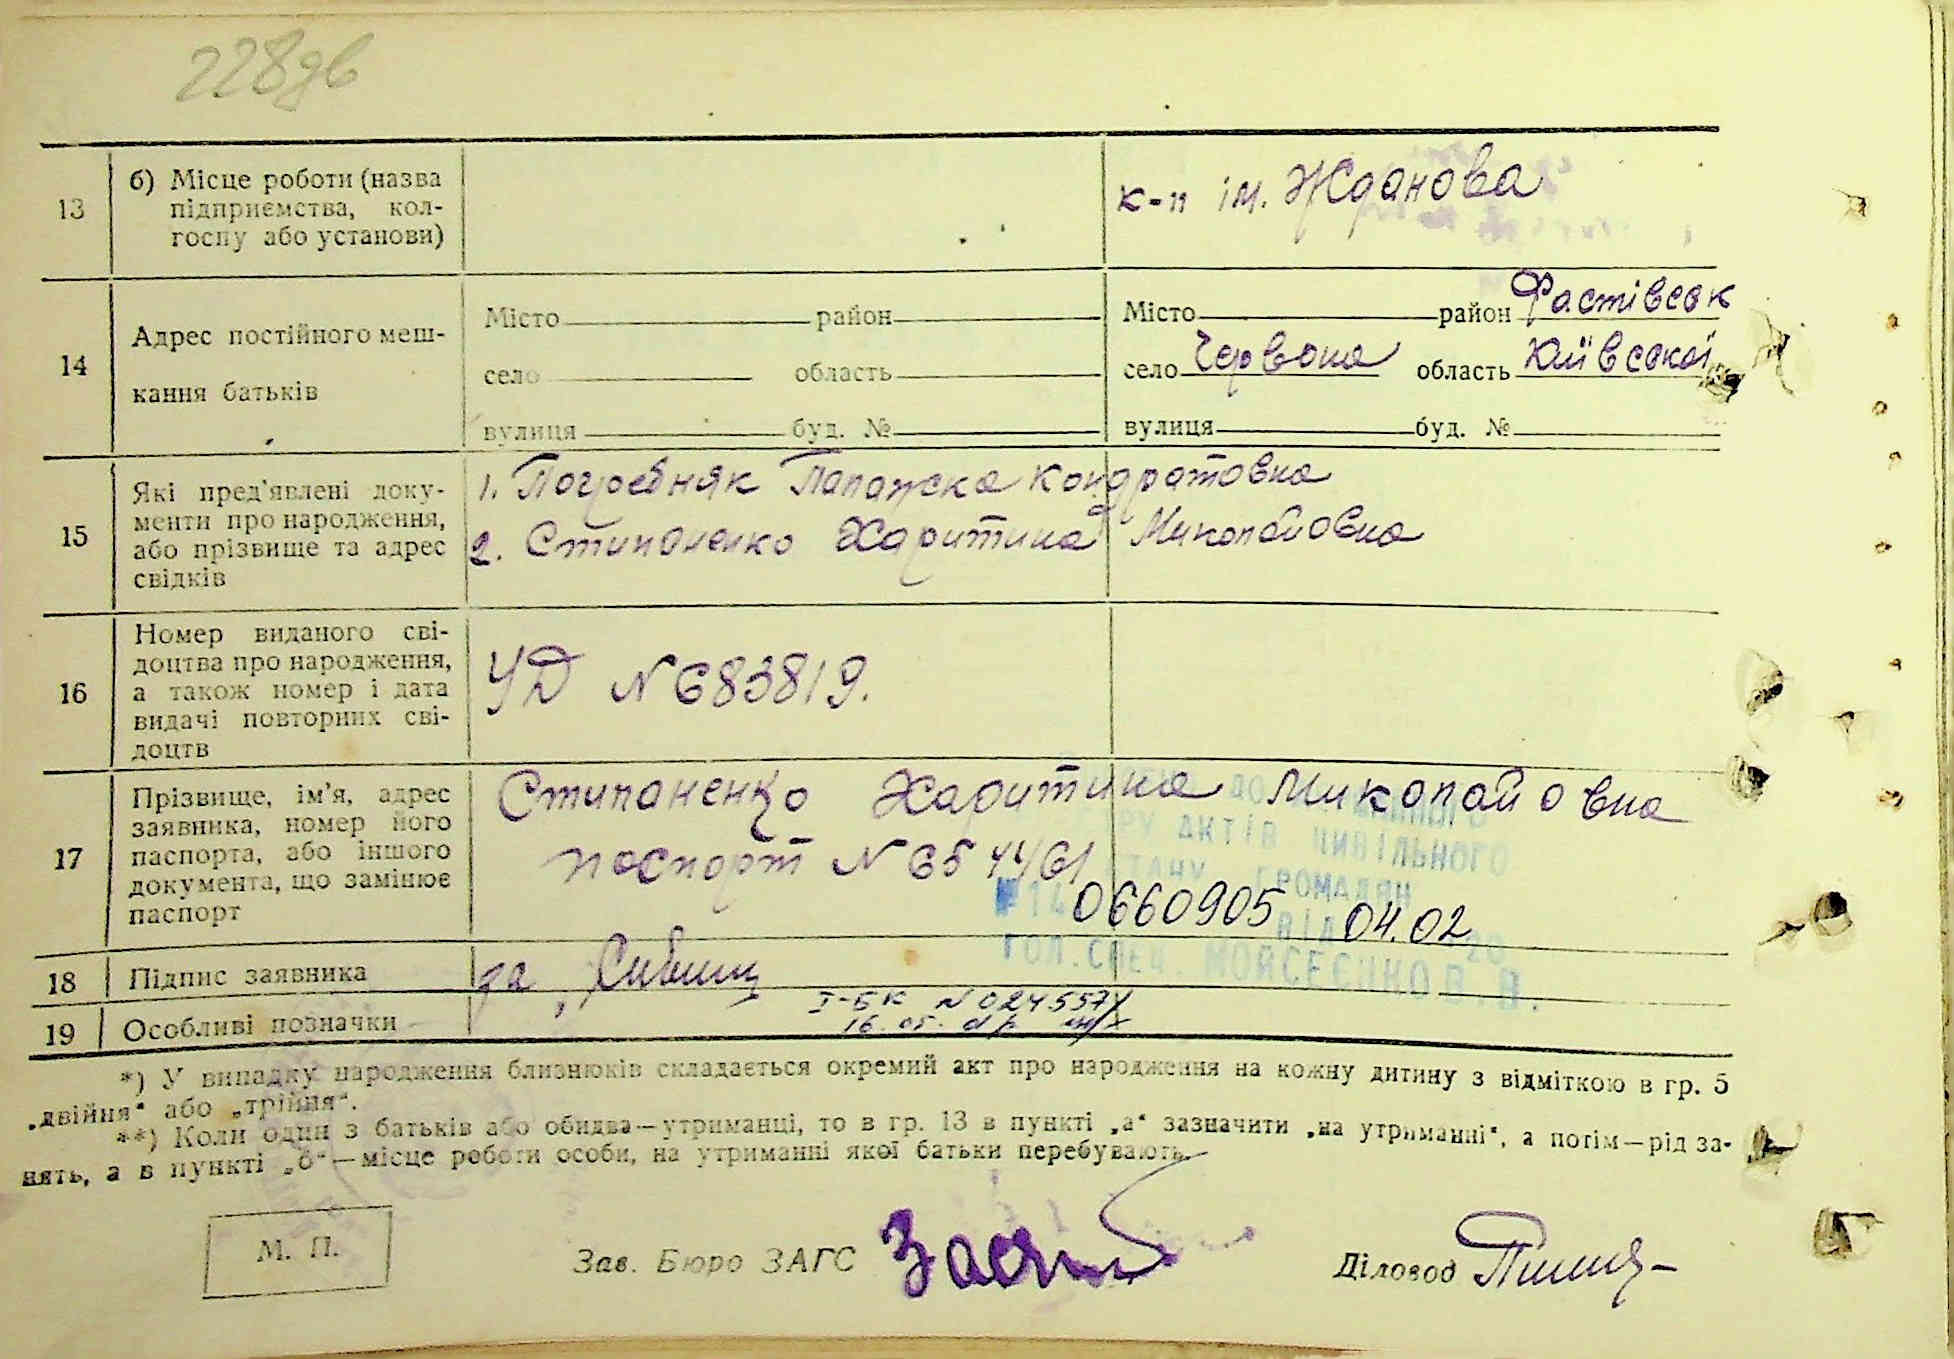 228дв
13
б) Місце роботи (назва
підприємства, кол-
госпу або установи)
к-п ім. Жданова
14
Адрес постійного меш-
кання батьків
Місто район
село область
вулиця буд. №
Місто район Фастівськ
село Червона область Київської
вулиця буд. №
15
Які пред'явлені доку-
менти про народження,
або прізвище та адрес
свідків
1. Погребняк Палажка Кондратовна
2. Стипаненко Харитина Миколайовна
16
Номер виданого сві-
доцтва про народження,
а також номер і дата
видачі повторних сві-
доцтв
УД N 683819.
17
Прізвище, ім'я, адрес
заявника, номер його
паспорта, або іншого
документа, що замінює
паспорт
Стипаненко Харитина Миколайовна
паспорт N
ДО
АКТІВ ЦИВІЛЬНОГО
ГРОМАДЯН
0660905 ВІД 04.02 20
ГОЛ. СПЕЦ. МОЙСЕЄНКО В.В.
18
Підпис заявника
за
19
Особливі позначки
І-БК N 024557
16.05.
*) У випадку народження близнюків складається окремий акт про народження на кожну дитину з відміткою в гр. 5
„двійня“ або „трійня“.
**) Коли один з батьків або обидва—утриманці, то в гр. 13 в пункті „а“ зазначити „на утриманні“, а потім—рід за-
нять, а в пункті „б“—місце роботи особи, на утриманні якої батьки перебувають.
М. П.
Зав. Бюро ЗАГС
Діловод